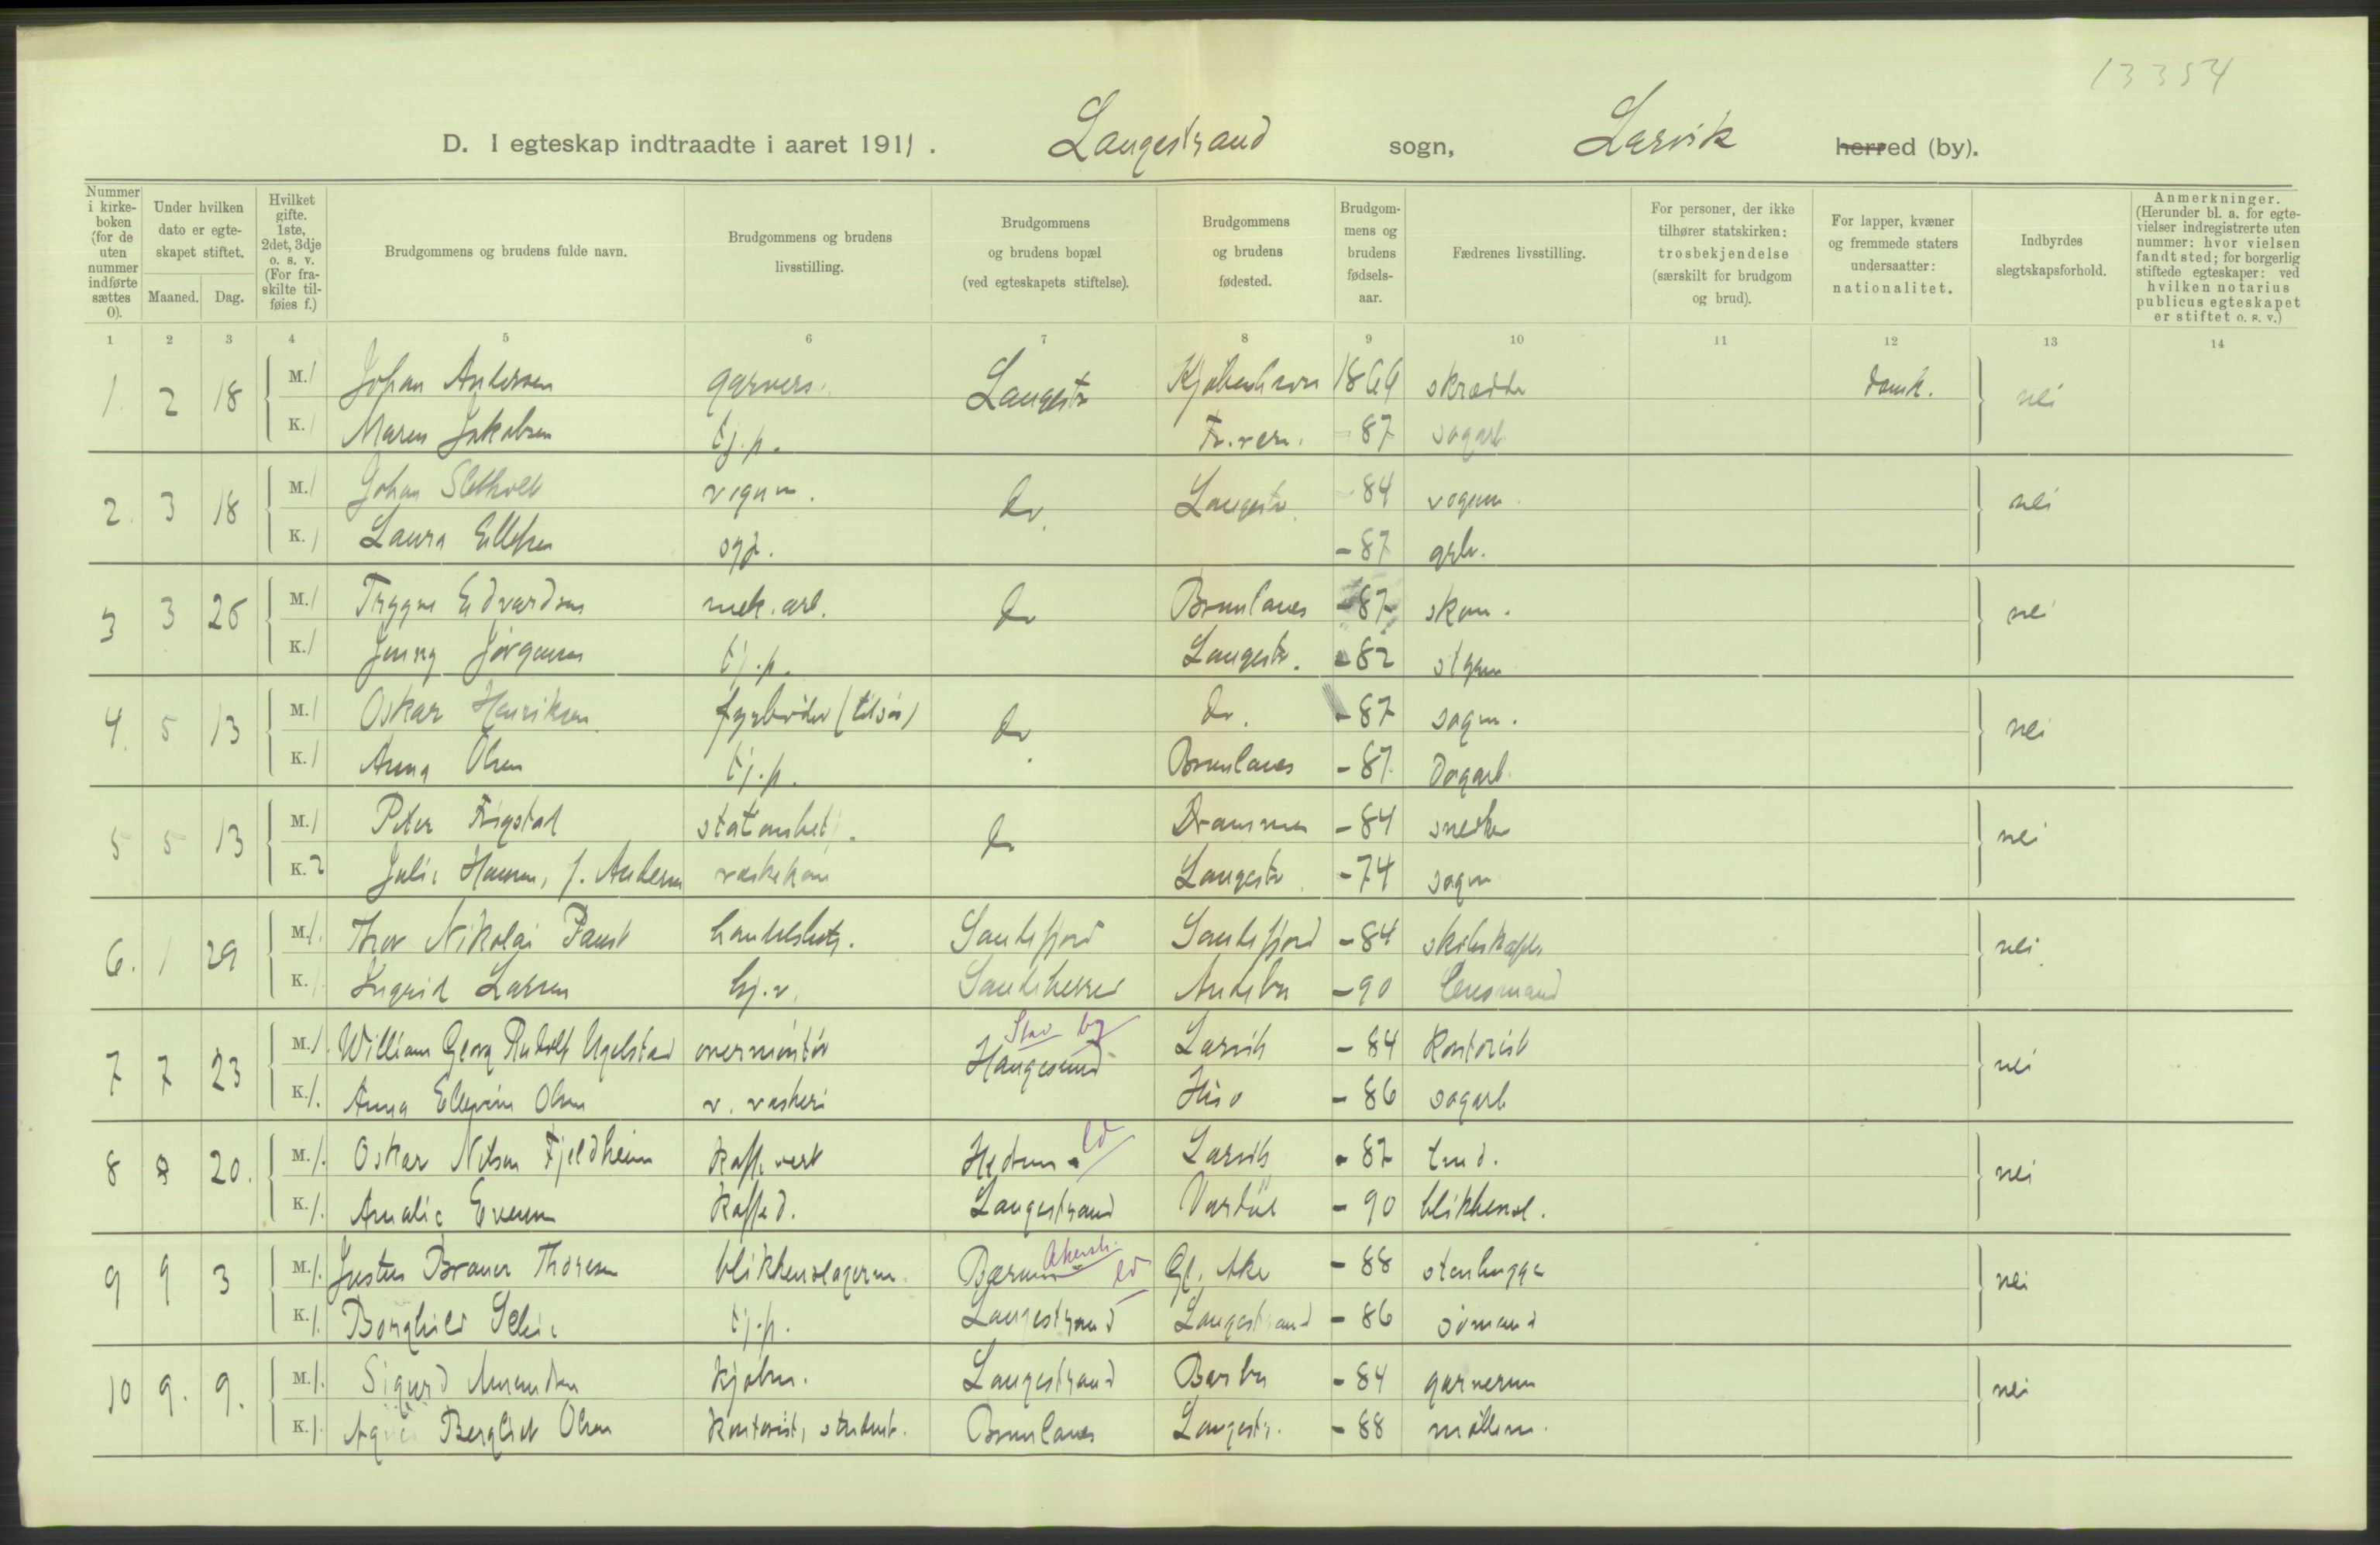 13354
D. I egteskap indtraadte i aaret 1911. Langestrand sogn, Larvik herred (by).
Nummer i kirkeboken (for de uten nummer indførte sættes 0). Under hvilken dato er egteskapet stiftet. Maaned. Dag. Hvilket gifte. 1ste, 2det, 3dje o. s. v. (For fraskilte tilføies f.) Brudgommens og brudens fulde navn. Brudgommens og brudens livsstilling. Brudgommens og brudens bopæl (ved egteskapets stiftelse). Brudgommens og brudens fødested. Brudgommens og brudens fødselsaar. Fædrenes livsstilling. For personer, der ikke tilhører statskirken: trosbekjendelse (særskilt for brudgom og brud). For lapper, kvæner og fremmede staters undersaatter: nationalitet. Indbyrdes slegtskapsforhold. Anmerkninger. (Herunder bl. a. for egtevielser indregistrerte uten nummer: hvor vielsen fandt sted; for borgerlig stiftede egteskaper: ved hvilken notarius publicus egteskapet er stiftet o. s. v.)
1 2 3 4 5 6 7 8 9 10 11 12 13 14
1. 2 18 M. 1 Johan Andersen garvers. Langestr Kjøbenhavn 1866 skrædder dansk. nei
K. 1 Maren Jakobsen tj.p. Fr.vern. - 87 sagarb.
2. 3 18 M. 1 Johan Sletholt vognm. do. Langestr. - 84 vognm. nei
K. 1 Laura Ellefsen syp. - 87 arb.
3 3 26 M. 1 Trygve Edvardsen mek. arb. do Brunlanes - 87 skom. nei
K. 1 Jenny Jørgensen tj.p. Langestr. - 82
4. 5 13 M. 1 Oskar Henriksen fyrbøder (tilsjøs) do. do. - 87 sagm. nei
K. 1 Anna Olsen tj.p. Brunlanes - 87 Dagarb.
5 5 13 M. 1 Peter Frigstad do Drammen - 84 snedker nei
K. 2 Julie Hansen, f. Andersen vaskekone Langestr. - 74 sagm
6. 1 29 M. 1. Thor Nikolai Paust handelsbetj. Sandefjord Sandefjord - 84 nei
K. Ingrid Larsen hj.v. Sandeherred Andebu - 90 lensmand
7 7 23 M. 1. William Georg Rudolf Ugelstad overmontør Haugesund Stav by Larvik - 84 kontorist nei
K. 1. Anna Ellevine Olsen v. vaskeri Hisø - 86 sagarb
8 8 20. M. 1. Oskar Nilsen Fjeldheim kaffevert Hedrum ld Larvik - 87 nei
K. 1. Amalie Evensen Kaffed. Langestrand Vardøe - 90 blikkensl.
9 9 3 M. 1. Justus Brauer Thoresen blikkenslagerm. Bærum Akersh. ld Gl. Aker - 88 stenhugger nei
K. 1. Borghild Selie tj.p. Langestrand Langestrand - 86 sømand
10 9. 9. M. 1. Sigurd Amundsen kjøbm. Langestrand Barbu - 84 garverm nei
K. 1. Agnes Bergliot Olsen kontorist, student. Brunlanes Langestr. - 88 møllerm.